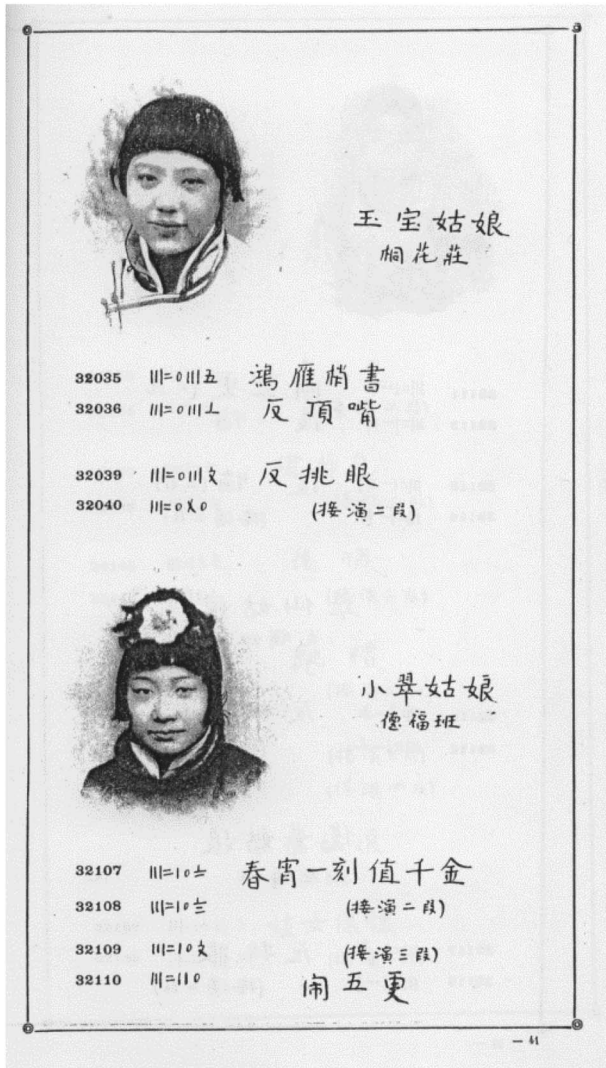 玉宝姑娘
桐花莊
32035 〣〢〇〣五 鴻雁悄書
32036 〣〢〇〣〦 反頂嘴
32039 〣〢〇〣文 反挑眼
32040 〣〢〇〤〇 (接演二段)
小翠姑娘
德福班
32107 〣〢〡〇〧 春宵一刻值千金
32108 〣〢〡〇〨 (接演二段)
32109 〣〢〡〇文 (接演三段)
32110 〣〢〡〡〇 闹五更
— 41